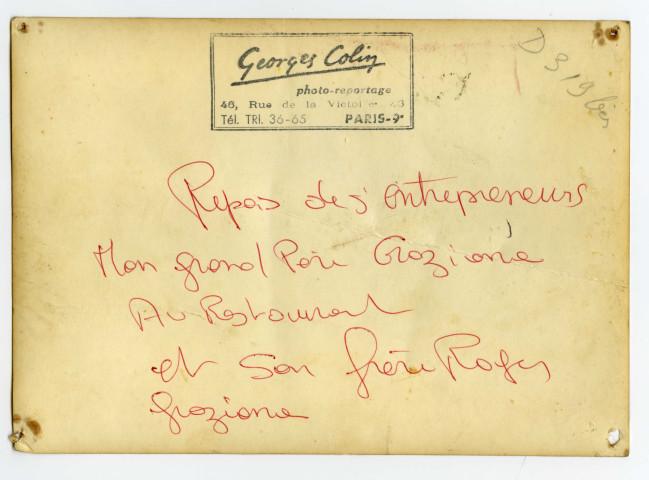 Georges Colin
photo-reportage
46, Rue de la
Tél. TRI. 36-65 PARIS-9e
D 319
Repas des entrepreneurs
Mon grand Père Graziana
Au Restaurant
et Son frère Roger
Graziana